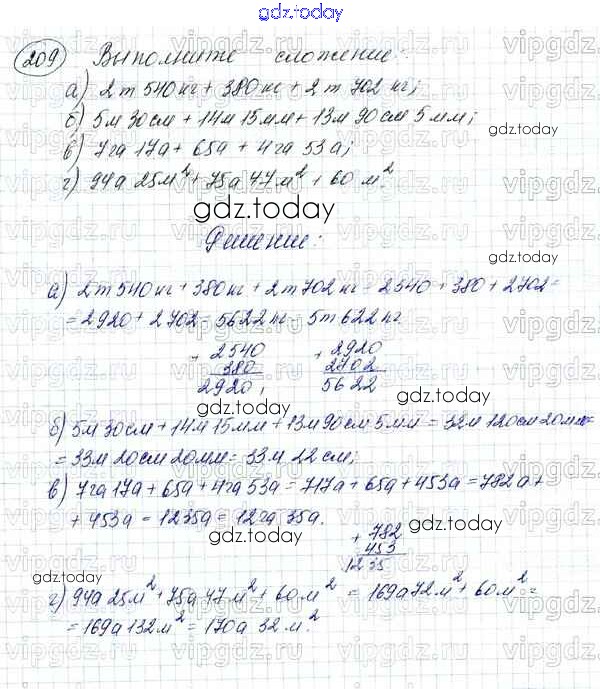 gdz.today
209 Выполните сложение:
а) 2т 540кг + 380кг + 2т 702 кг;
б) 5м 30см + 14м 15мм + 13м 90см 5мм;
gdz.today
в) 7га 17а + 65а + 4га 53а;
г) 94а 25м² + 75а 47м² + 60 м².
gdz.today
Решение:
а) 2т 540кг + 380кг + 2т 702кг = 2540 + 380 + 2702 =
= 2920 + 2702 = 5622кг = 5т 622кг.
+ 2540 + 2920
380 2702
2920, 5622
gdz.today
б) 5м 30см + 14м 15мм + 13м 90см 5мм = 32м 120см 20мм =
= 33м 20см 20мм = 33м 22см;
в) 7га 17а + 65а + 4га 53а = 717а + 65а + 453а = 782а +
+ 453а = 1235а = 12га 35а.
+ 782
453
1235
gdz.today
gdz.today
г) 94а 25м² + 75а 47м² + 60м² = 169а 72м² + 60м² =
= 169а 132м² = 170а 32м².
gdz.today